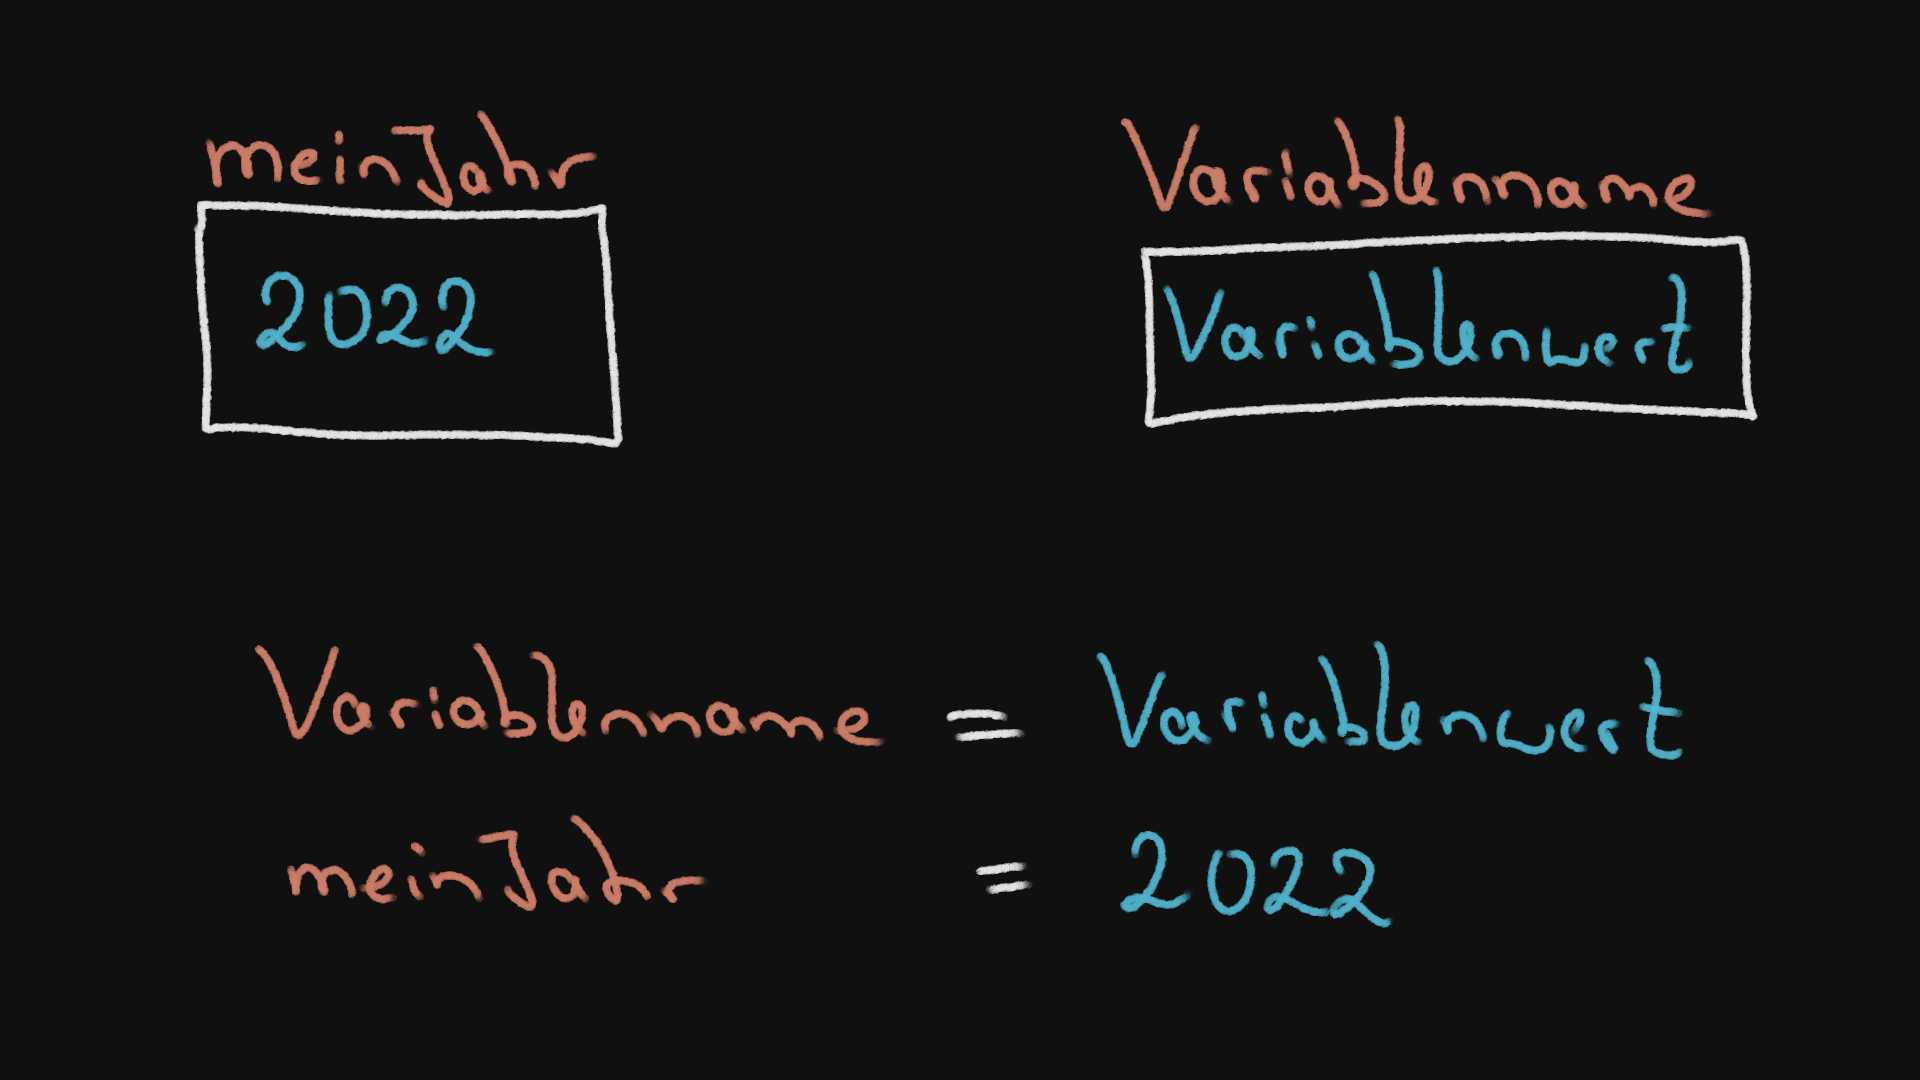 meinJahr
2022
Variablenname
Variablenwert
Variablenname = Variablenwert
meinJahr = 2022